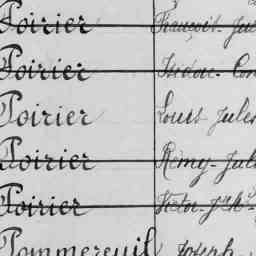 Poirier François-Jul
Poirier Isidore-Con
Poirier Louis Jules
Poirier Rémy-Jul
Poirier Victor-
Pommereuil Joseph